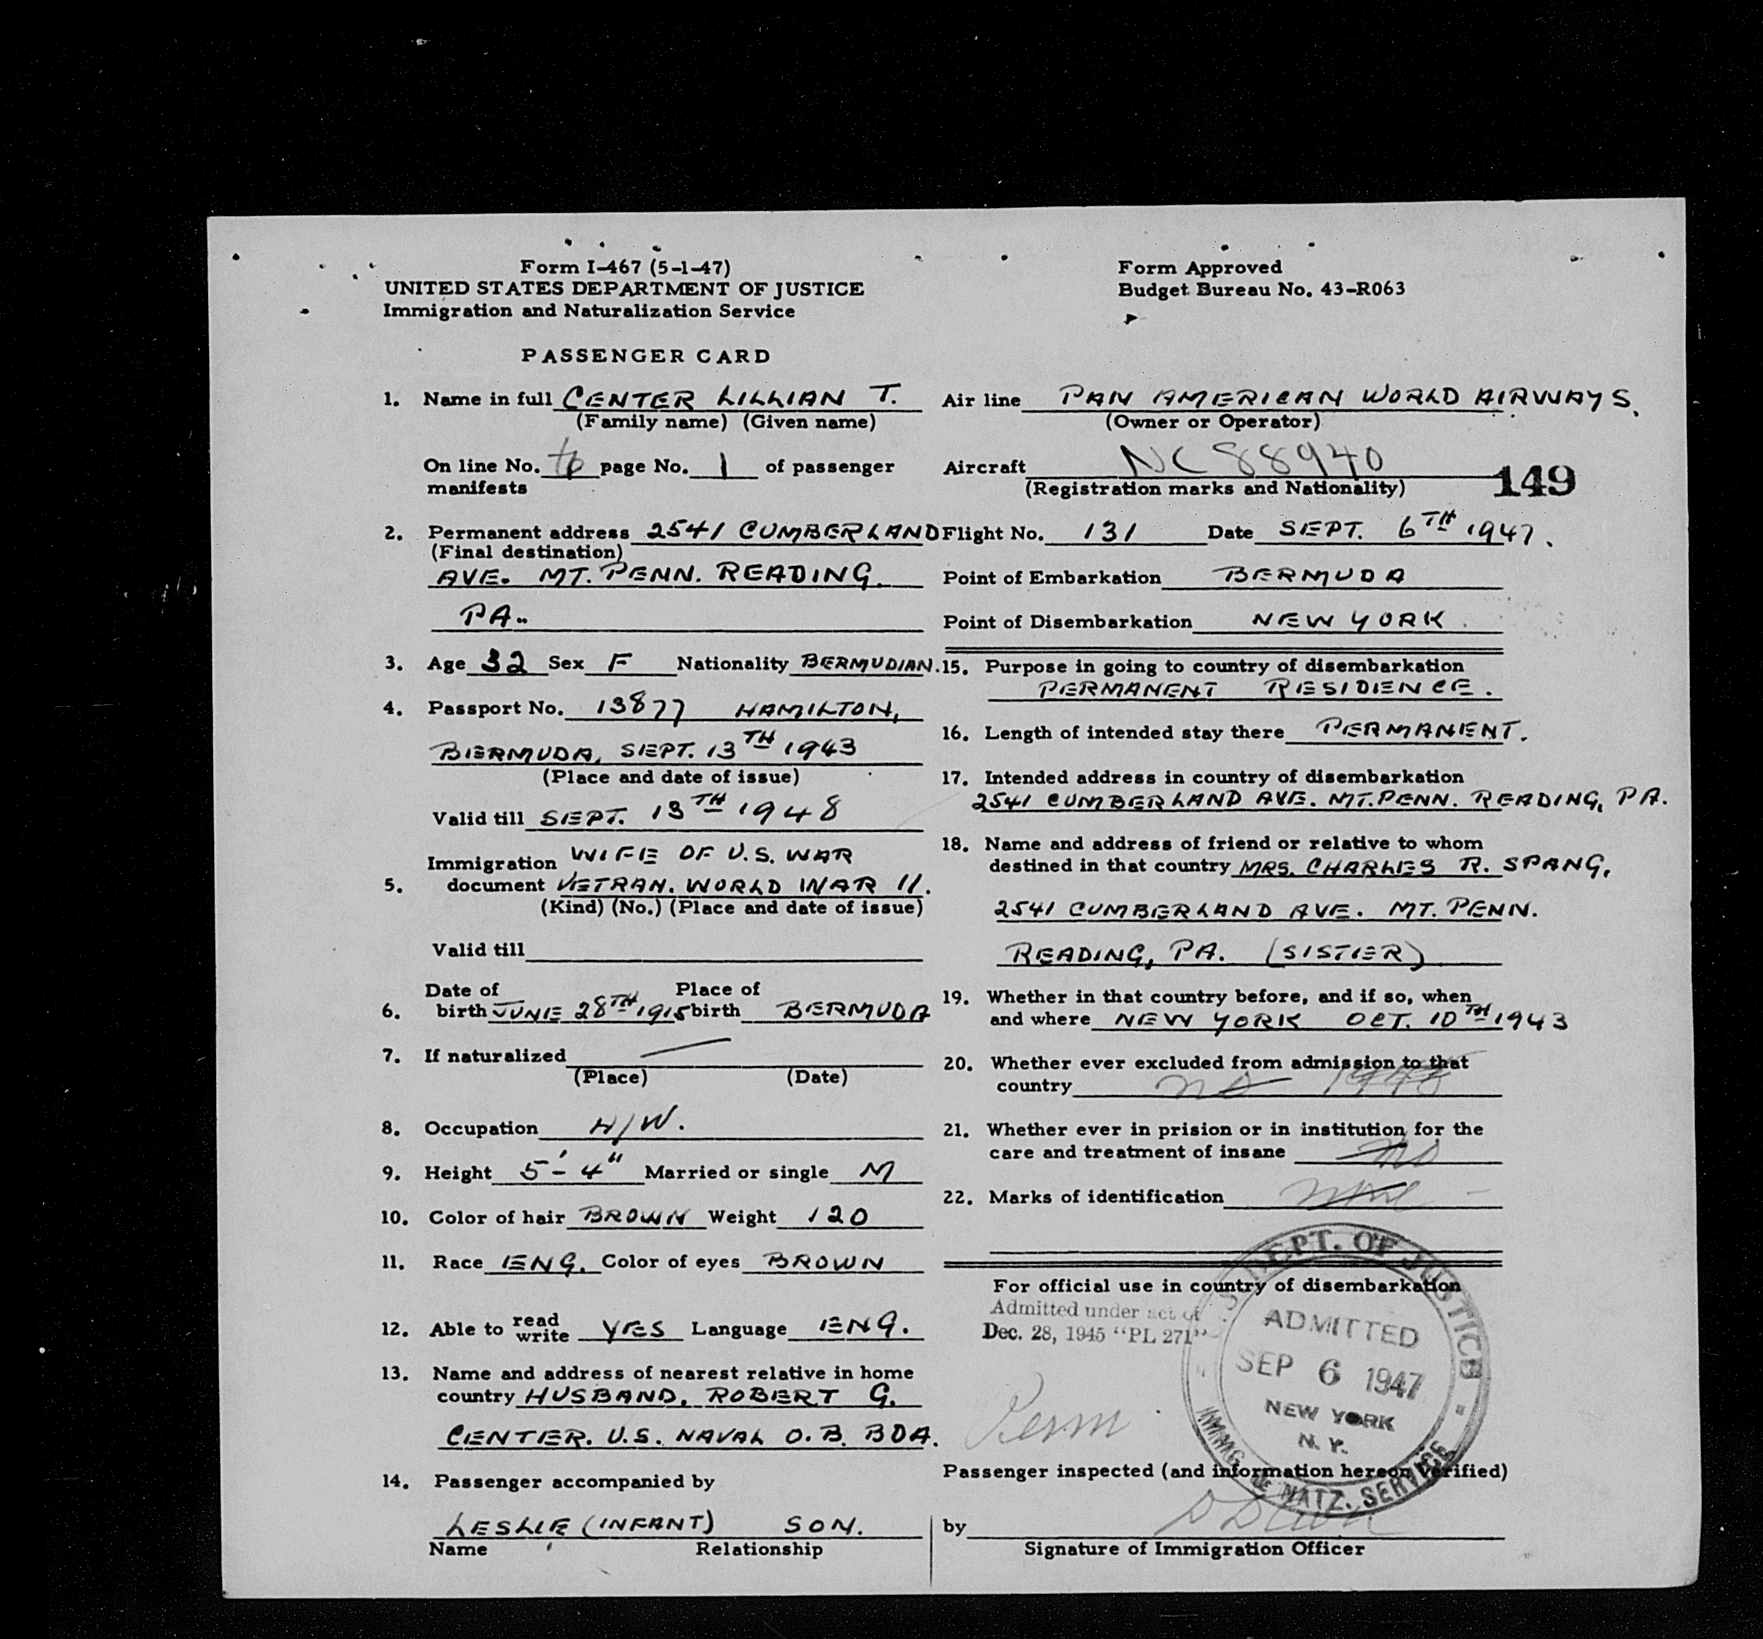 Form I-467 (5-1-47)
UNITED STATES DEPARTMENT OF JUSTICE
Immigration and Naturalization Service
Form Approved
Budget Bureau No. 43-R063
PASSENGER CARD
1. Name in full CENTER LILLIAN T.
(Family name) (Given name)
On line No. page No. 1 of passenger
manifests
2. Permanent address 2541 CUMBERLAND
(Final destination)
AVE. MT. PENN. READING.
PA.
3. Age 32 Sex F Nationality BERMUDIAN.
4. Passport No. 13877 HAMILTON,
BERMUDA, SEPT. 13TH 1943
(Place and date of issue)
Valid till SEPT. 13TH 1948
Immigration WIFE OF U.S. WAR
5. document VETRAN. WORLD WAR 11.
(Kind) (No.) (Place and date of issue)
Valid till
Date of Place of
6. birth JUNE 28TH 1915 birth BERMUDA
7. If naturalized —
(Place) (Date)
8. Occupation H/W.
9. Height 5'-4" Married or single M
10. Color of hair BROWN Weight 120
11. Race ENG. Color of eyes BROWN
12. Able to read write YES Language ENG.
13. Name and address of nearest relative in home
country HUSBAND. ROBERT G.
CENTER. U.S. NAVAL O.B. BDA.
14. Passenger accompanied by
LESLIE (INFANT) SON.
Name Relationship
Air line PAN AMERICAN WORLD AIRWAYS.
(Owner or Operator)
Aircraft NC 88940
(Registration marks and Nationality)
149
Flight No. 131 Date SEPT. 6TH 1947.
Point of Embarkation BERMUDA
Point of Disembarkation NEW YORK.
15. Purpose in going to country of disembarkation
PERMANENT RESIDENCE.
16. Length of intended stay there PERMANENT.
17. Intended address in country of disembarkation
2541 CUMBERLAND AVE. MT. PENN. READING, PA.
18. Name and address of friend or relative to whom
destined in that country MRS. CHARLES R. SPANG,
2541 CUMBERLAND AVE. MT. PENN.
READING, PA. (SISTER)
19. Whether in that country before, and if so, when
and where NEW YORK OCT. 10TH 1943
20. Whether ever excluded from admission to that
country no
21. Whether ever in prision or in institution for the
care and treatment of insane no
22. Marks of identification none
For official use in country of disembarkation
Admitted under act of
Dec. 28, 1945 "PL 271"
Perm
DEPT. OF JUSTICE
ADMITTED
SEP 6 1947
NEW YORK
N. Y.
IMMIG. & NATZ. SERVICE
Passenger inspected (and information hereon verified)
by
Signature of Immigration Officer